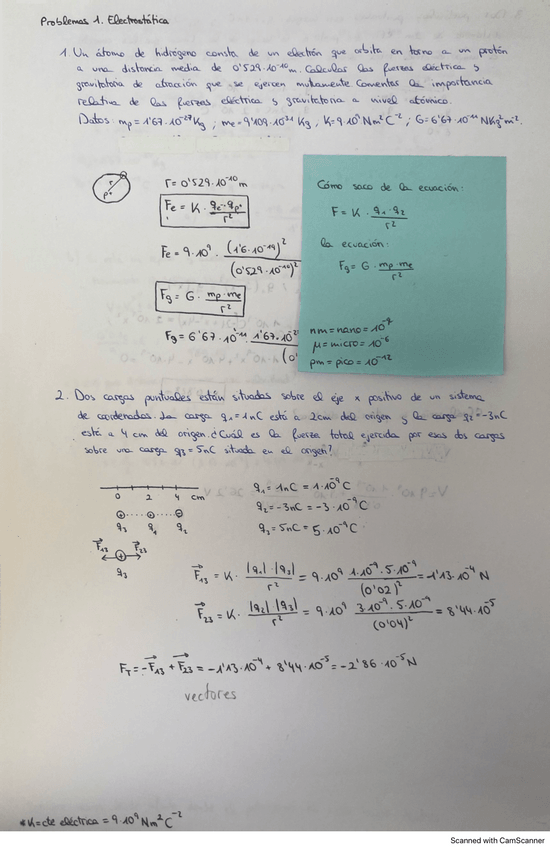 Problemas 1. Electrostática
1. Un átomo de hidrógeno consta de un electrón que orbita en torno a un protón
a una distancia media de 0'529·10⁻¹⁰ m. Calcular las fuerzas eléctrica y
gravitatoria de atracción que se ejercen mutuamente. Comentar la importancia
relativa de las fuerzas eléctrica y gravitatoria a nivel atómico.
Datos: mp = 1'67·10⁻²⁷ Kg ; me = 9'109·10⁻³¹ Kg, K = 9·10⁹ Nm²C⁻² ; G = 6'67·10⁻¹¹ NKg⁻²m².
r
p⁺
r = 0'529·10⁻¹⁰ m
Fe = K · qe·qp / r²
Fe = 9·10⁹ · (1'6·10⁻¹⁹)² / (0'529·10⁻¹⁰)²
Fg = G · mp·me / r²
Fg = 6'67·10⁻¹¹ · 1'67·10⁻²
(0'
Cómo saco de la ecuación:
F = K · q₁·q₂ / r²
la ecuación:
Fg = G · mp·me / r²
nm = nano = 10⁻⁹
μ = micro = 10⁻⁶
pm = pico = 10⁻¹²
2. Dos cargas puntuales están situadas sobre el eje x positivo de un sistema
de coordenadas. La carga q₁ = 1nC está a 2cm del origen y la carga q₂ = -3nC
está a 4 cm del origen. ¿Cuál es la fuerza total ejercida por esas dos cargas
sobre una carga q₃ = 5nC situada en el origen?
0 2 4 cm
q₃ q₁ q₂
F₁₃ F₂₃
q₃
q₁ = 1nC = 1·10⁻⁹ C
q₂ = -3nC = -3·10⁻⁹ C
q₃ = 5nC = 5·10⁻⁹ C
F₁₃ = K · |q₁|·|q₃| / r² = 9·10⁹ 1·10⁻⁹·5·10⁻⁹ / (0'02)² = -1'13·10⁻⁴ N
F₂₃ = K · |q₂|·|q₃| / r² = 9·10⁹ 3·10⁻⁹·5·10⁻⁹ / (0'04)² = 8'44·10⁻⁵
F_T = -F₁₃ + F₂₃ = -1'13·10⁻⁴ + 8'44·10⁻⁵ = -2'86·10⁻⁵ N
vectores
*K = cte eléctrica = 9·10⁹ Nm²C⁻²
Scanned with CamScanner